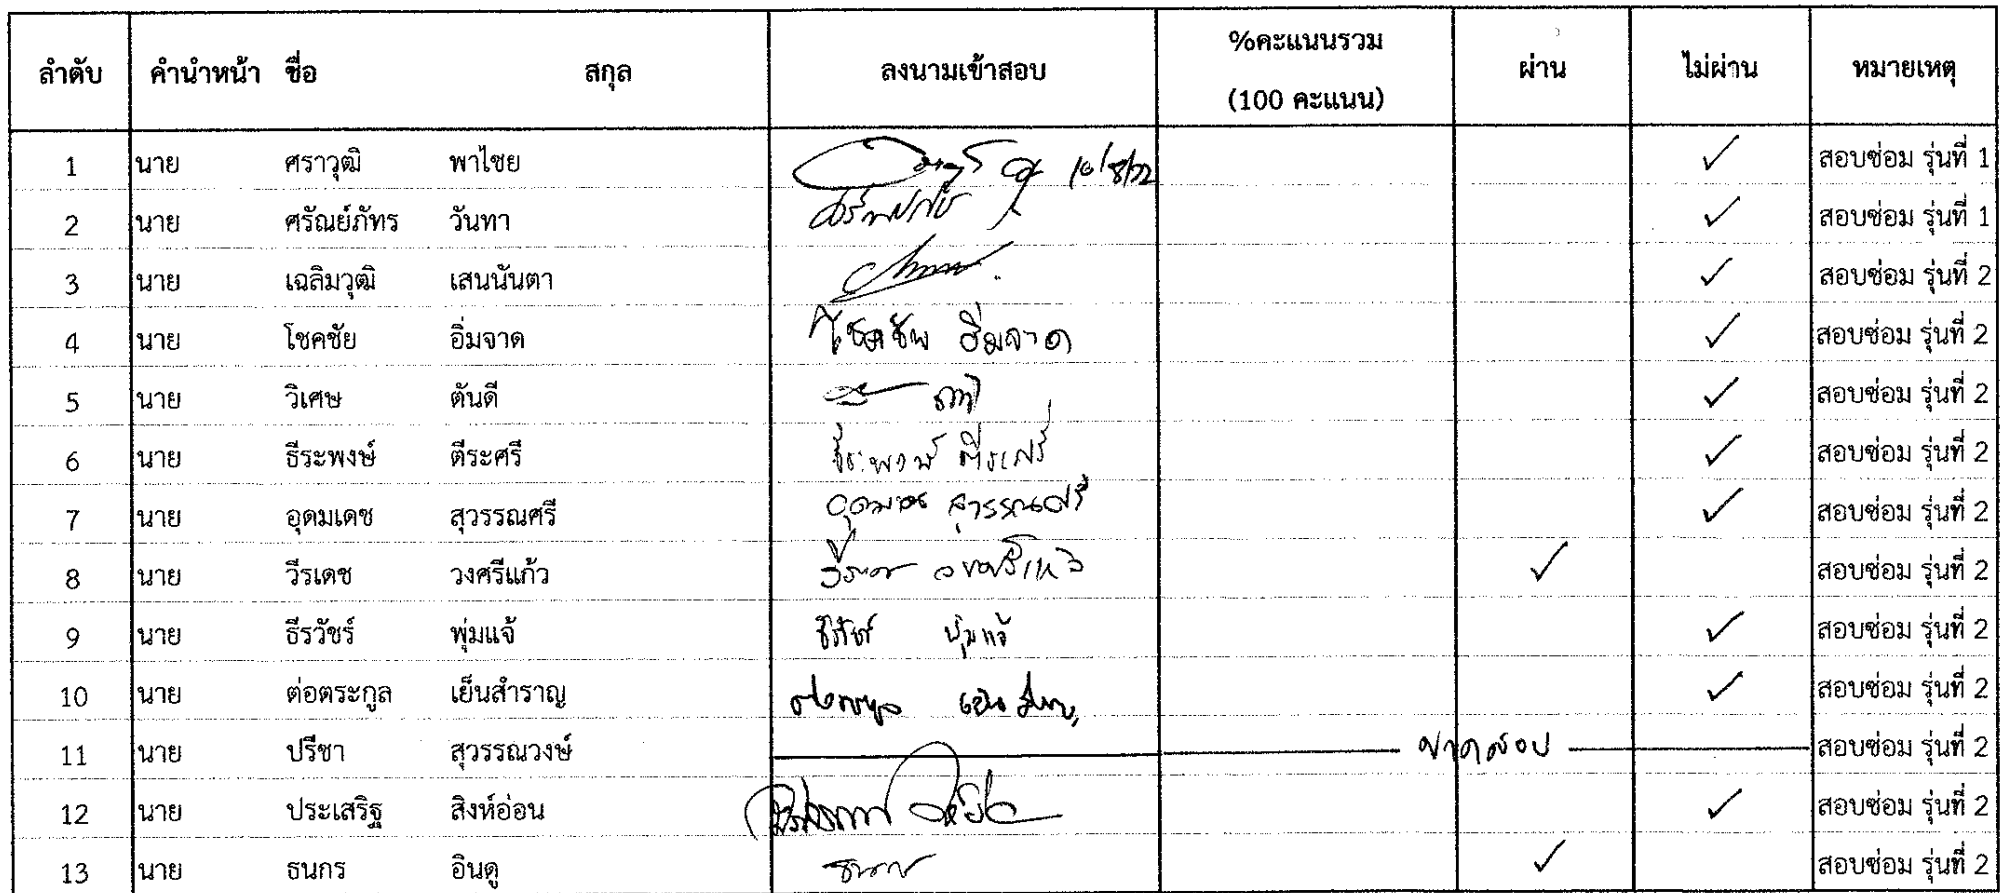 ลำดับ คำนำหน้า ชื่อ สกุล ลงนามเข้าสอบ %คะแนนรวม (100 คะแนน) ผ่าน ไม่ผ่าน หมายเหตุ
1 นาย ศราวุฒิ พาไชย ✓ สอบซ่อม รุ่นที่ 1
2 นาย ศรัณย์ภัทร วันทา ✓ สอบซ่อม รุ่นที่ 1
3 นาย เฉลิมวุฒิ เสนนันตา ✓ สอบซ่อม รุ่นที่ 2
4 นาย โชคชัย อิ่มจาด โชคชัย อิ่มจาด ✓ สอบซ่อม รุ่นที่ 2
5 นาย วิเศษ ตันดี ✓ สอบซ่อม รุ่นที่ 2
6 นาย ธีระพงษ์ ตีระศรี ธีระพงษ์ ตีระศรี ✓ สอบซ่อม รุ่นที่ 2
7 นาย อุดมเดช สุวรรณศรี อุดมเดช สุวรรณศรี ✓ สอบซ่อม รุ่นที่ 2
8 นาย วีรเดช วงศรีแก้ว วีรเดช วงศรีแก้ว ✓ สอบซ่อม รุ่นที่ 2
9 นาย ธีรวัชร์ พุ่มแจ้ ธีรวัชร์ พุ่มแจ้ ✓ สอบซ่อม รุ่นที่ 2
10 นาย ต่อตระกูล เย็นสำราญ ต่อตระกูล เย็นสำราญ ✓ สอบซ่อม รุ่นที่ 2
11 นาย ปรีชา สุวรรณวงษ์ ขาดสอบ สอบซ่อม รุ่นที่ 2
12 นาย ประเสริฐ สิงห์อ่อน ✓ สอบซ่อม รุ่นที่ 2
13 นาย ธนกร อินดู ธนกร ✓ สอบซ่อม รุ่นที่ 2